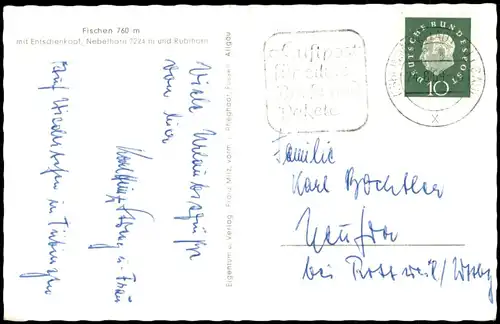 Fischen 760 m
mit Entschenkopf, Nebelhorn 2224 m und Rubihorn
Viele Urlaubsgrüße
von hier
u. Frau
Auf Wiedersehen in Tübingen
Eigentum u. Verlag Franz Milz, vorm. Fischen Allgäu
Luftpost
für
Briefe und
Pakete
DEUTSCHE BUNDESPOST
10
Familie
Karl Bochtler
Neufra
bei Rottweil/Wttbg